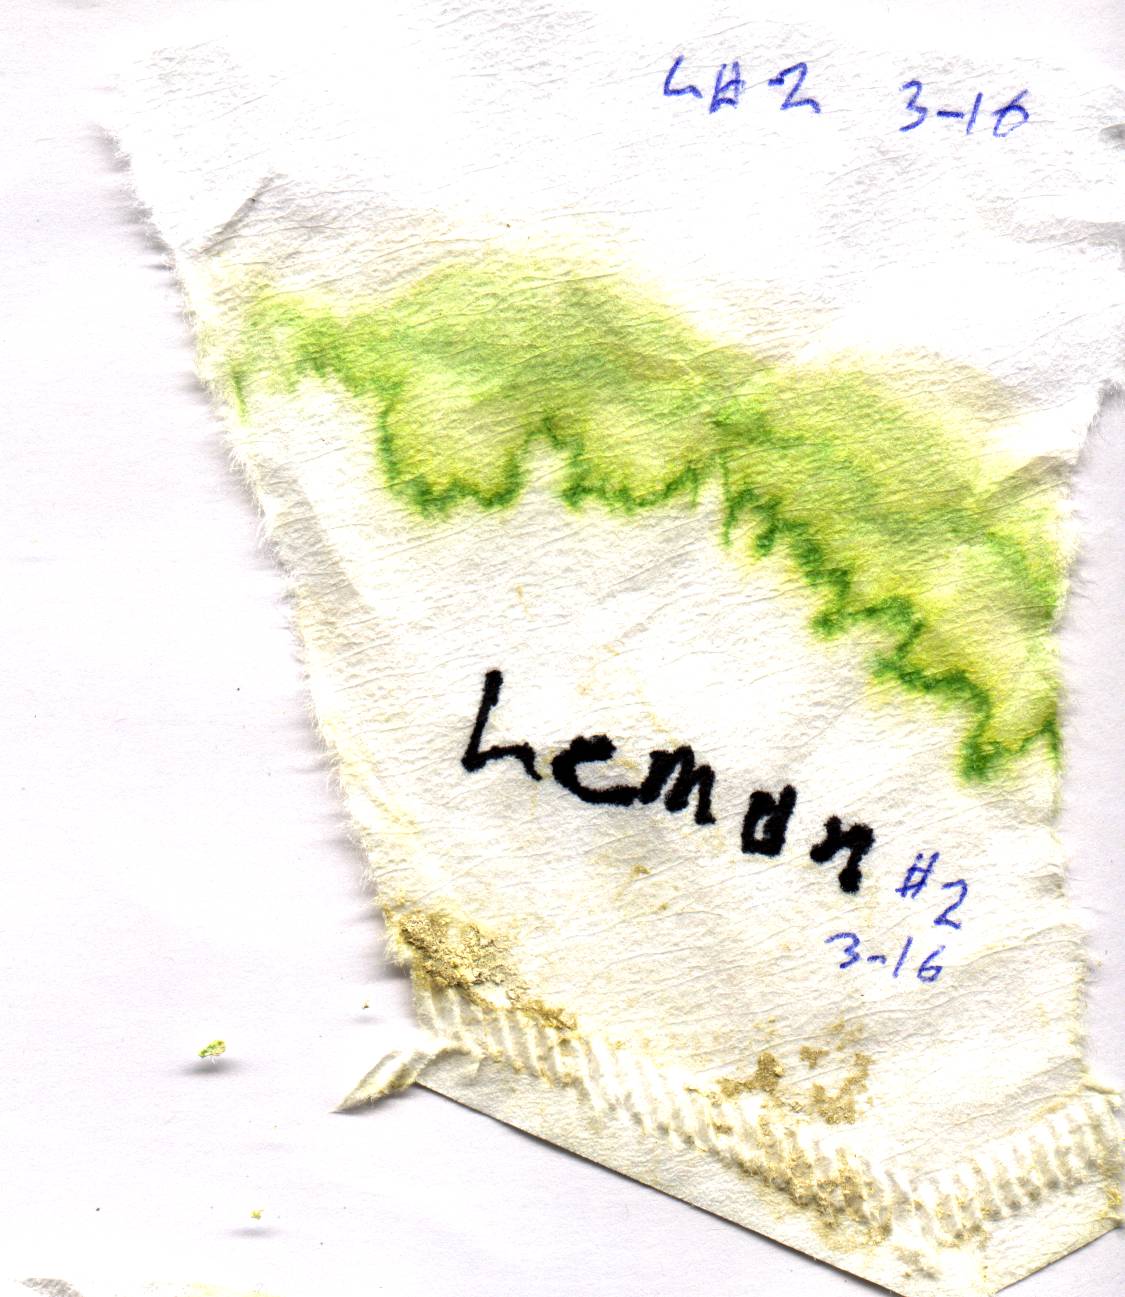 L#2 3-16
Lemon
#2
3-16